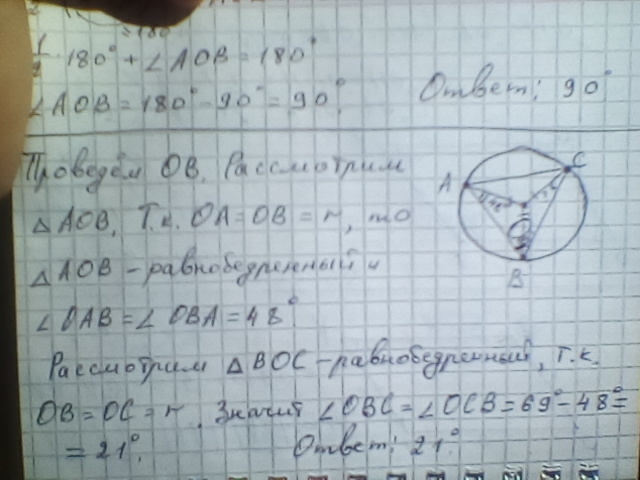 = 180°
1/2 · 180° + ∠AOB = 180°
∠AOB = 180° - 90° = 90°.
Ответ: 90°
Проведём OB. Рассмотрим
△AOB. Т.к. OA = OB = r, то
△AOB - равнобедренный и
∠OAB = ∠OBA = 48°
Рассмотрим △BOC - равнобедренный, т.к.
OB = OC = r. Значит ∠OBC = ∠OCB = 69° - 48° =
= 21°.
Ответ: 21°.
A
C
B